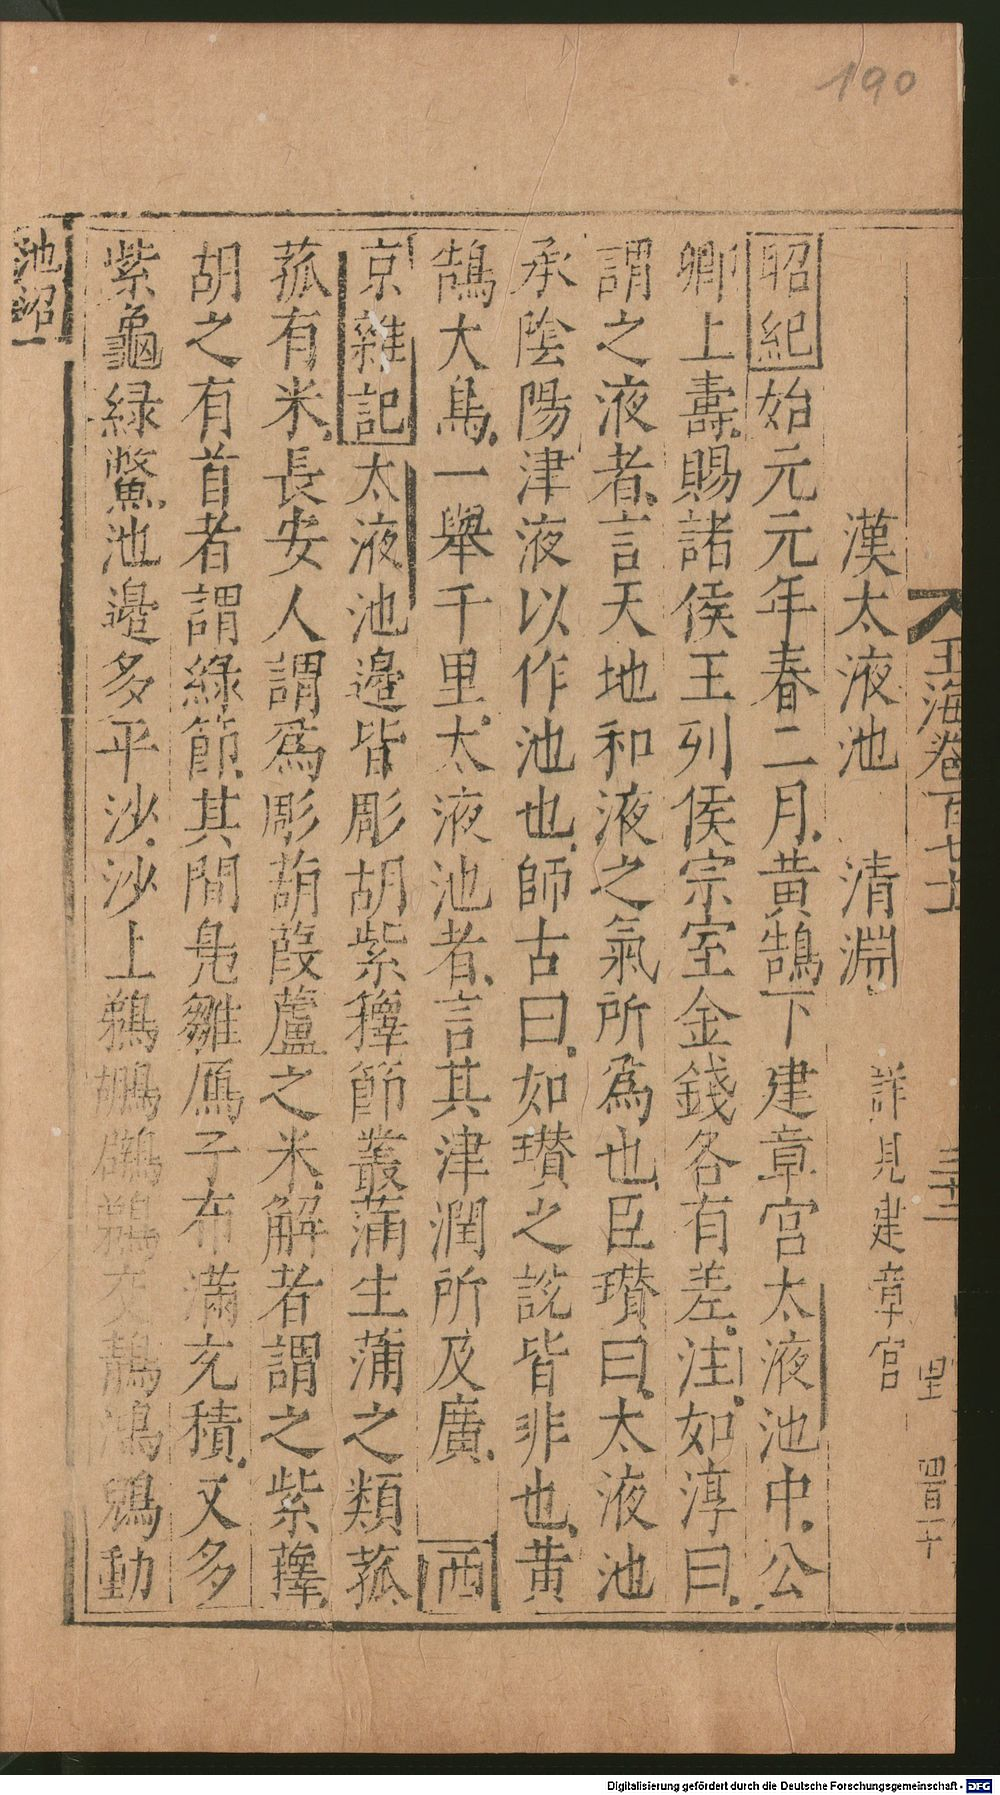 190
玉海卷百七十
漢太液池　清淵　詳見建章宮
昭紀始元元年春二月黄鵠下建章宮太液池中公
卿上壽賜諸侯王列侯宗室金錢各有差注如淳曰
謂之液者言天地和液之氣所為也臣瓚曰太液池
承陰陽津液以作池也師古曰如瓚之說皆非也黄
鵠大鳥一舉千里太液池者言其津潤所及廣　西
京雜記太液池邉皆彫胡紫籜節叢蒲生蒲之類菰
菰有米長安人謂爲彫葫葭蘆之米解者謂之紫蘀
胡之有首者謂緑節其間鳬雛鴈子布滿充積又多
紫龜緑鱉池邉多平沙沙上鵜鶘鷓鴣交鶄鴻鶂動
池沼一
Digitalisierung gefördert durch die Deutsche Forschungsgemeinschaft - DFG